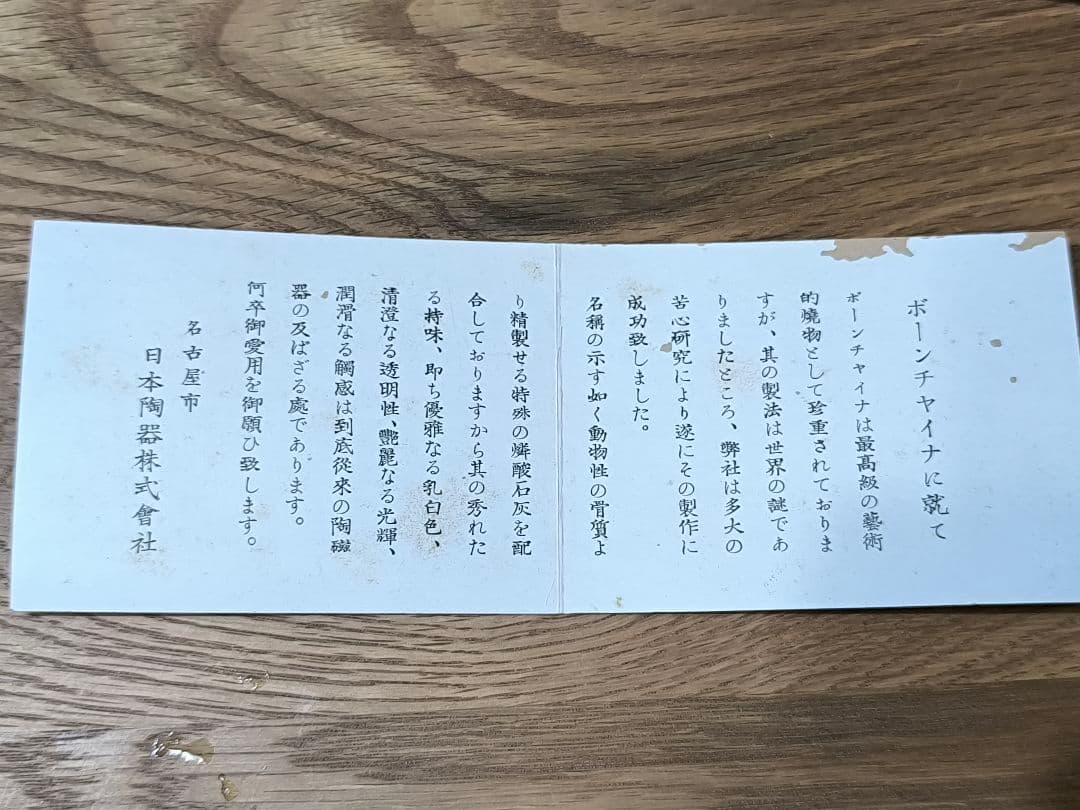 ボーンチヤイナに就て
ボーンチャイナは最高級の藝術
的燒物として珍重されておりま
すが、其の製法は世界の謎であ
りましたところ、弊社は多大の
苦心研究により遂にその製作に
成功致しました。
名稱の示す如く動物性の骨質よ
り精製せる特殊の燐酸石灰を配
合しておりますから其の秀れた
る持味、即ち優雅なる乳白色、
清澄なる透明性、艷麗なる光輝、
潤滑なる觸感は到底從來の陶磁
器の及ばざる處であります。
何卒御愛用を御願ひ致します。
名古屋市
日本陶器株式會社